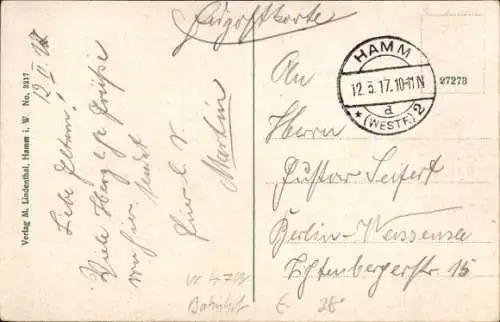 Feldpostkarte
12 V. 17
Liebe Eltern!
Viele Herzliche Grüße
von hier sendet
Euer l. S.
Martin
Verlag M. Lindenthal, Hamm i. W. No. 3217
HAMM
12.5.17.10-11N
d
* (WESTF.) 2
27273
An
Herrn
Gustav Seifert
Berlin-Weissensee
Lichtenbergerstr. 15
Bahnhof